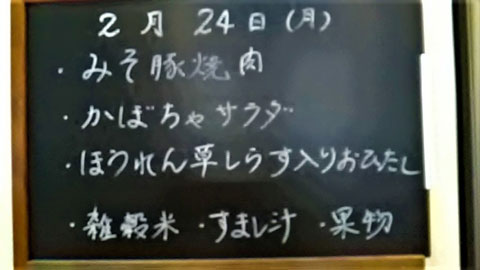 2月24日(月)
・みそ豚焼肉
・かぼちゃサラダ
・ほうれん草しらす入りおひたし
・雑穀米 ・すまし汁 ・果物